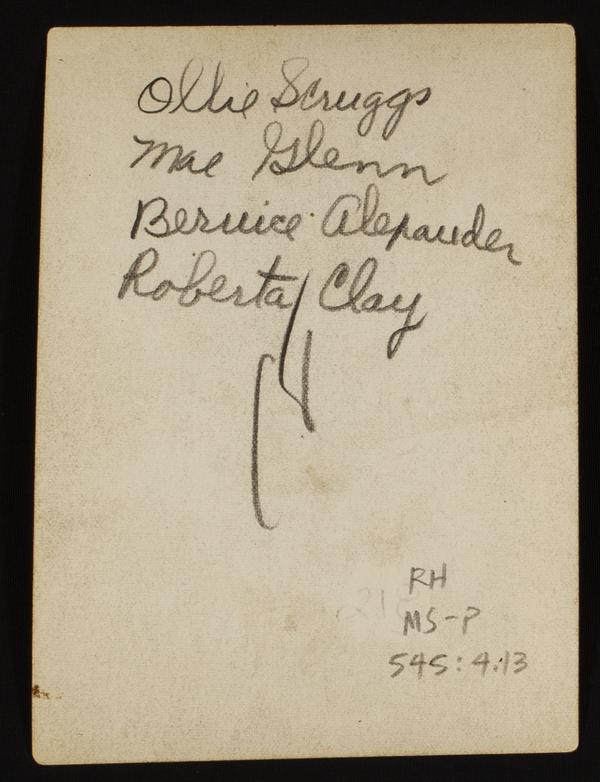 Ollie Scruggs
Mae Glenn
Bernice Alexander
Roberta Clay
RH
MS-P
545:4.13